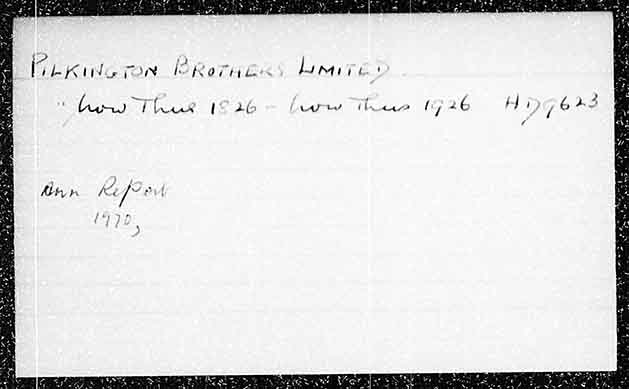 PILKINGTON BROTHERS LIMITED
" Now Thus 1826 - Now Thus 1926 HD9623
Ann Report
1970,